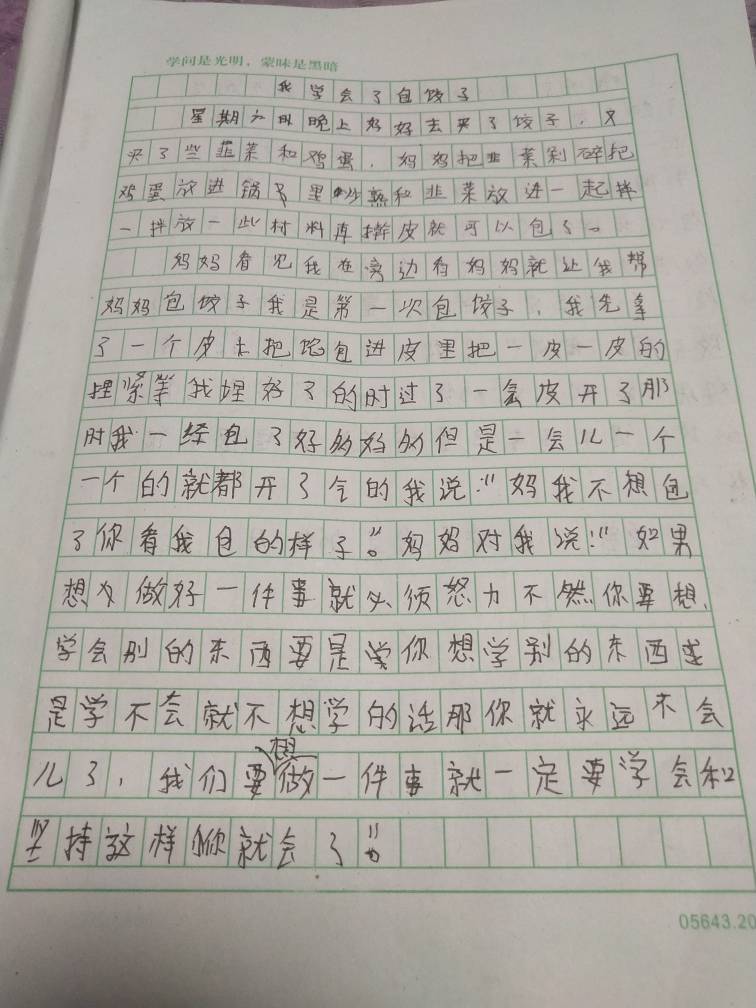 学问是光明，蒙昧是黑暗
我学会了包饺子
星期六日晚上妈妈去买了饺子，又
买了些韭菜和鸡蛋，妈妈把韭菜剁碎把
鸡蛋放进锅里炒熟和韭菜放进一起拌
一拌放一些材料再擀皮就可以包了。
妈妈看见我在旁边看妈妈就让我帮
妈妈包饺子我是第一次包饺子，我先拿
了一个皮把馅包进皮里把一皮一皮的
捏紧等我捏好了的时过了一会皮开了那
时我一经包了好多好多的但是一会儿一个
一个的就都开了气的我说：“妈我不想包
了你看我包的样子”。妈妈对我说：“如果
想做好一件事就必须怒力不然你要想
学会别的东西要是学你想学别的东西要
是学不会就不想学的话那你就永远不会
儿了，我们要想做一件事就一定要学会和
坚持这样你就会了”。
05643.20